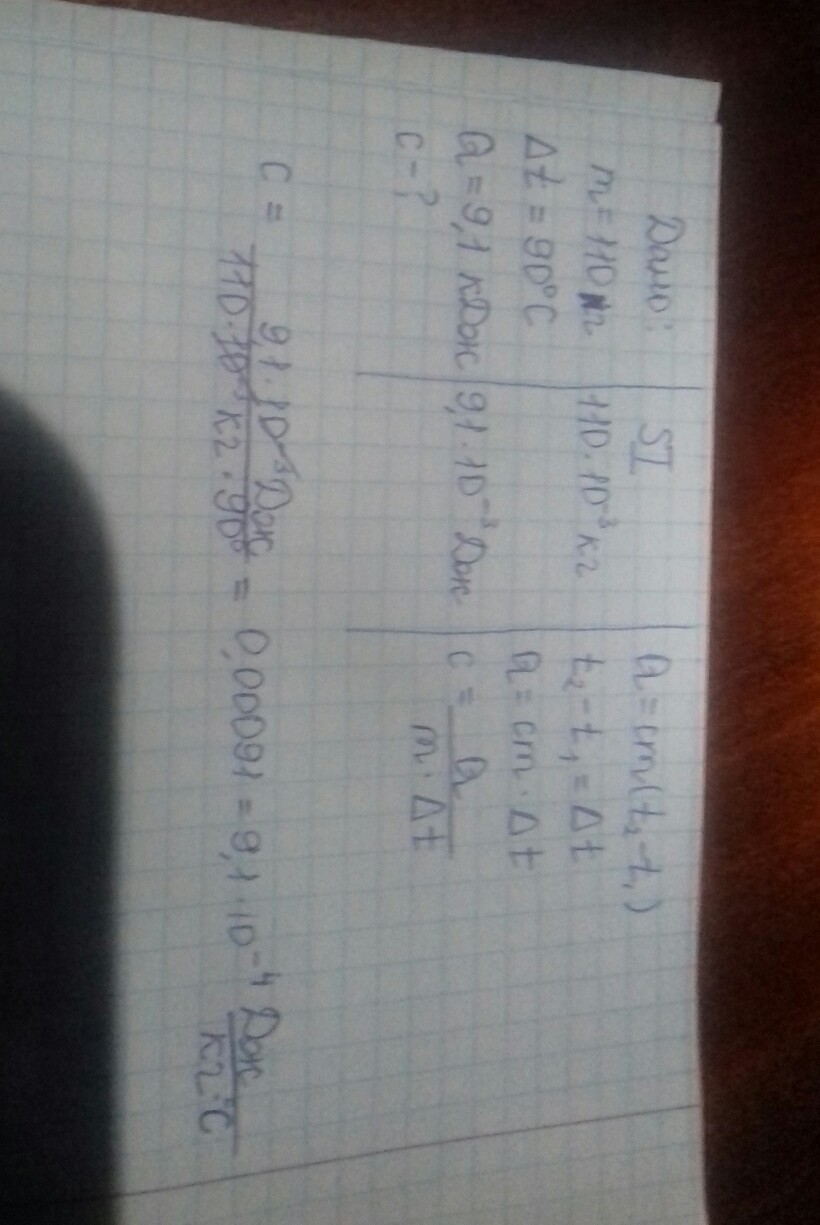 Дано:
m = 110 г
Δt = 90°C
Q = 9,1 кДж
c - ?
SI
110 · 10⁻³ кг
9,1 · 10⁻³ Дж
Q = cm(t₂ - t₁)
t₂ - t₁ = Δt
Q = cm · Δt
c = Q / m · Δt
c = 9,1 · 10⁻³ Дж / 110 · 10⁻³ кг · 90° = 0,00091 = 9,1 · 10⁻⁴ Дж / кг · °C